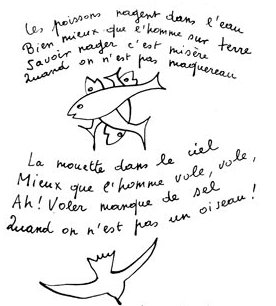 Les poissons nagent dans l'eau
Bien mieux que l'homme sur terre
Savoir nager c'est misère
Quand on n'est pas maquereau
La mouette dans le ciel
Mieux que l'homme vole, vole,
Ah! Voler manque de sel
Quand on n'est pas un oiseau!